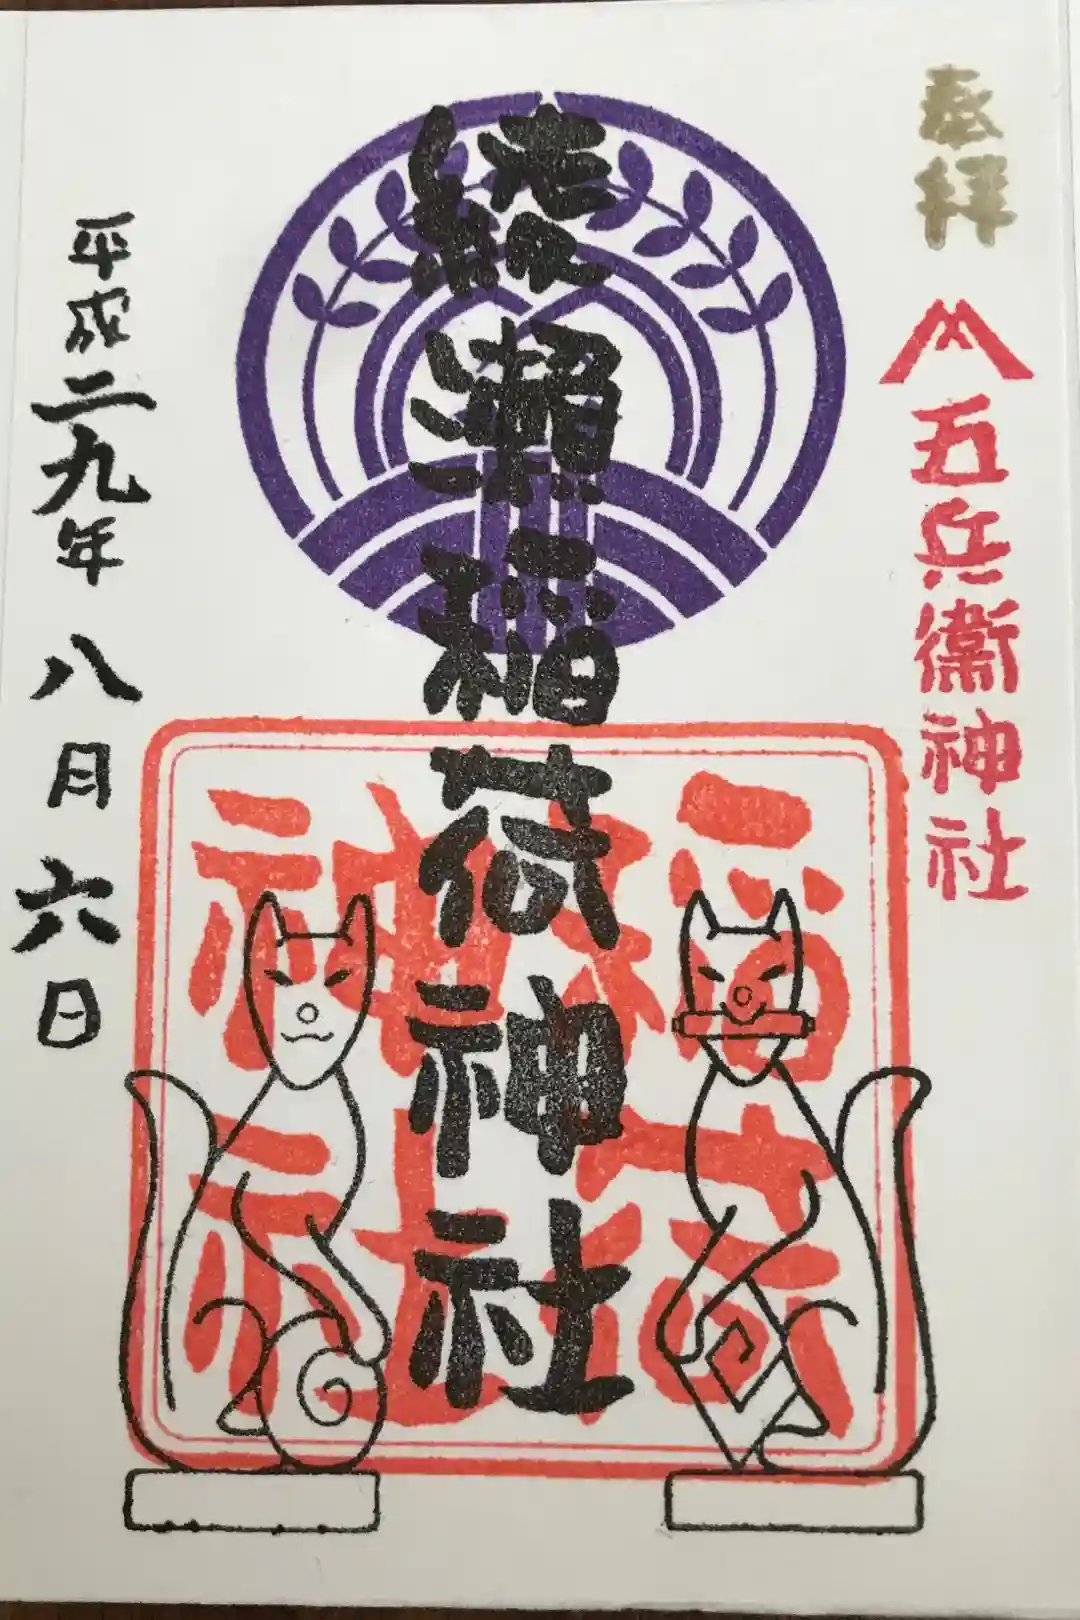 奉拝
五兵衛神社
綾瀬稲荷神社
稲荷
神社
平成二九年八月六日